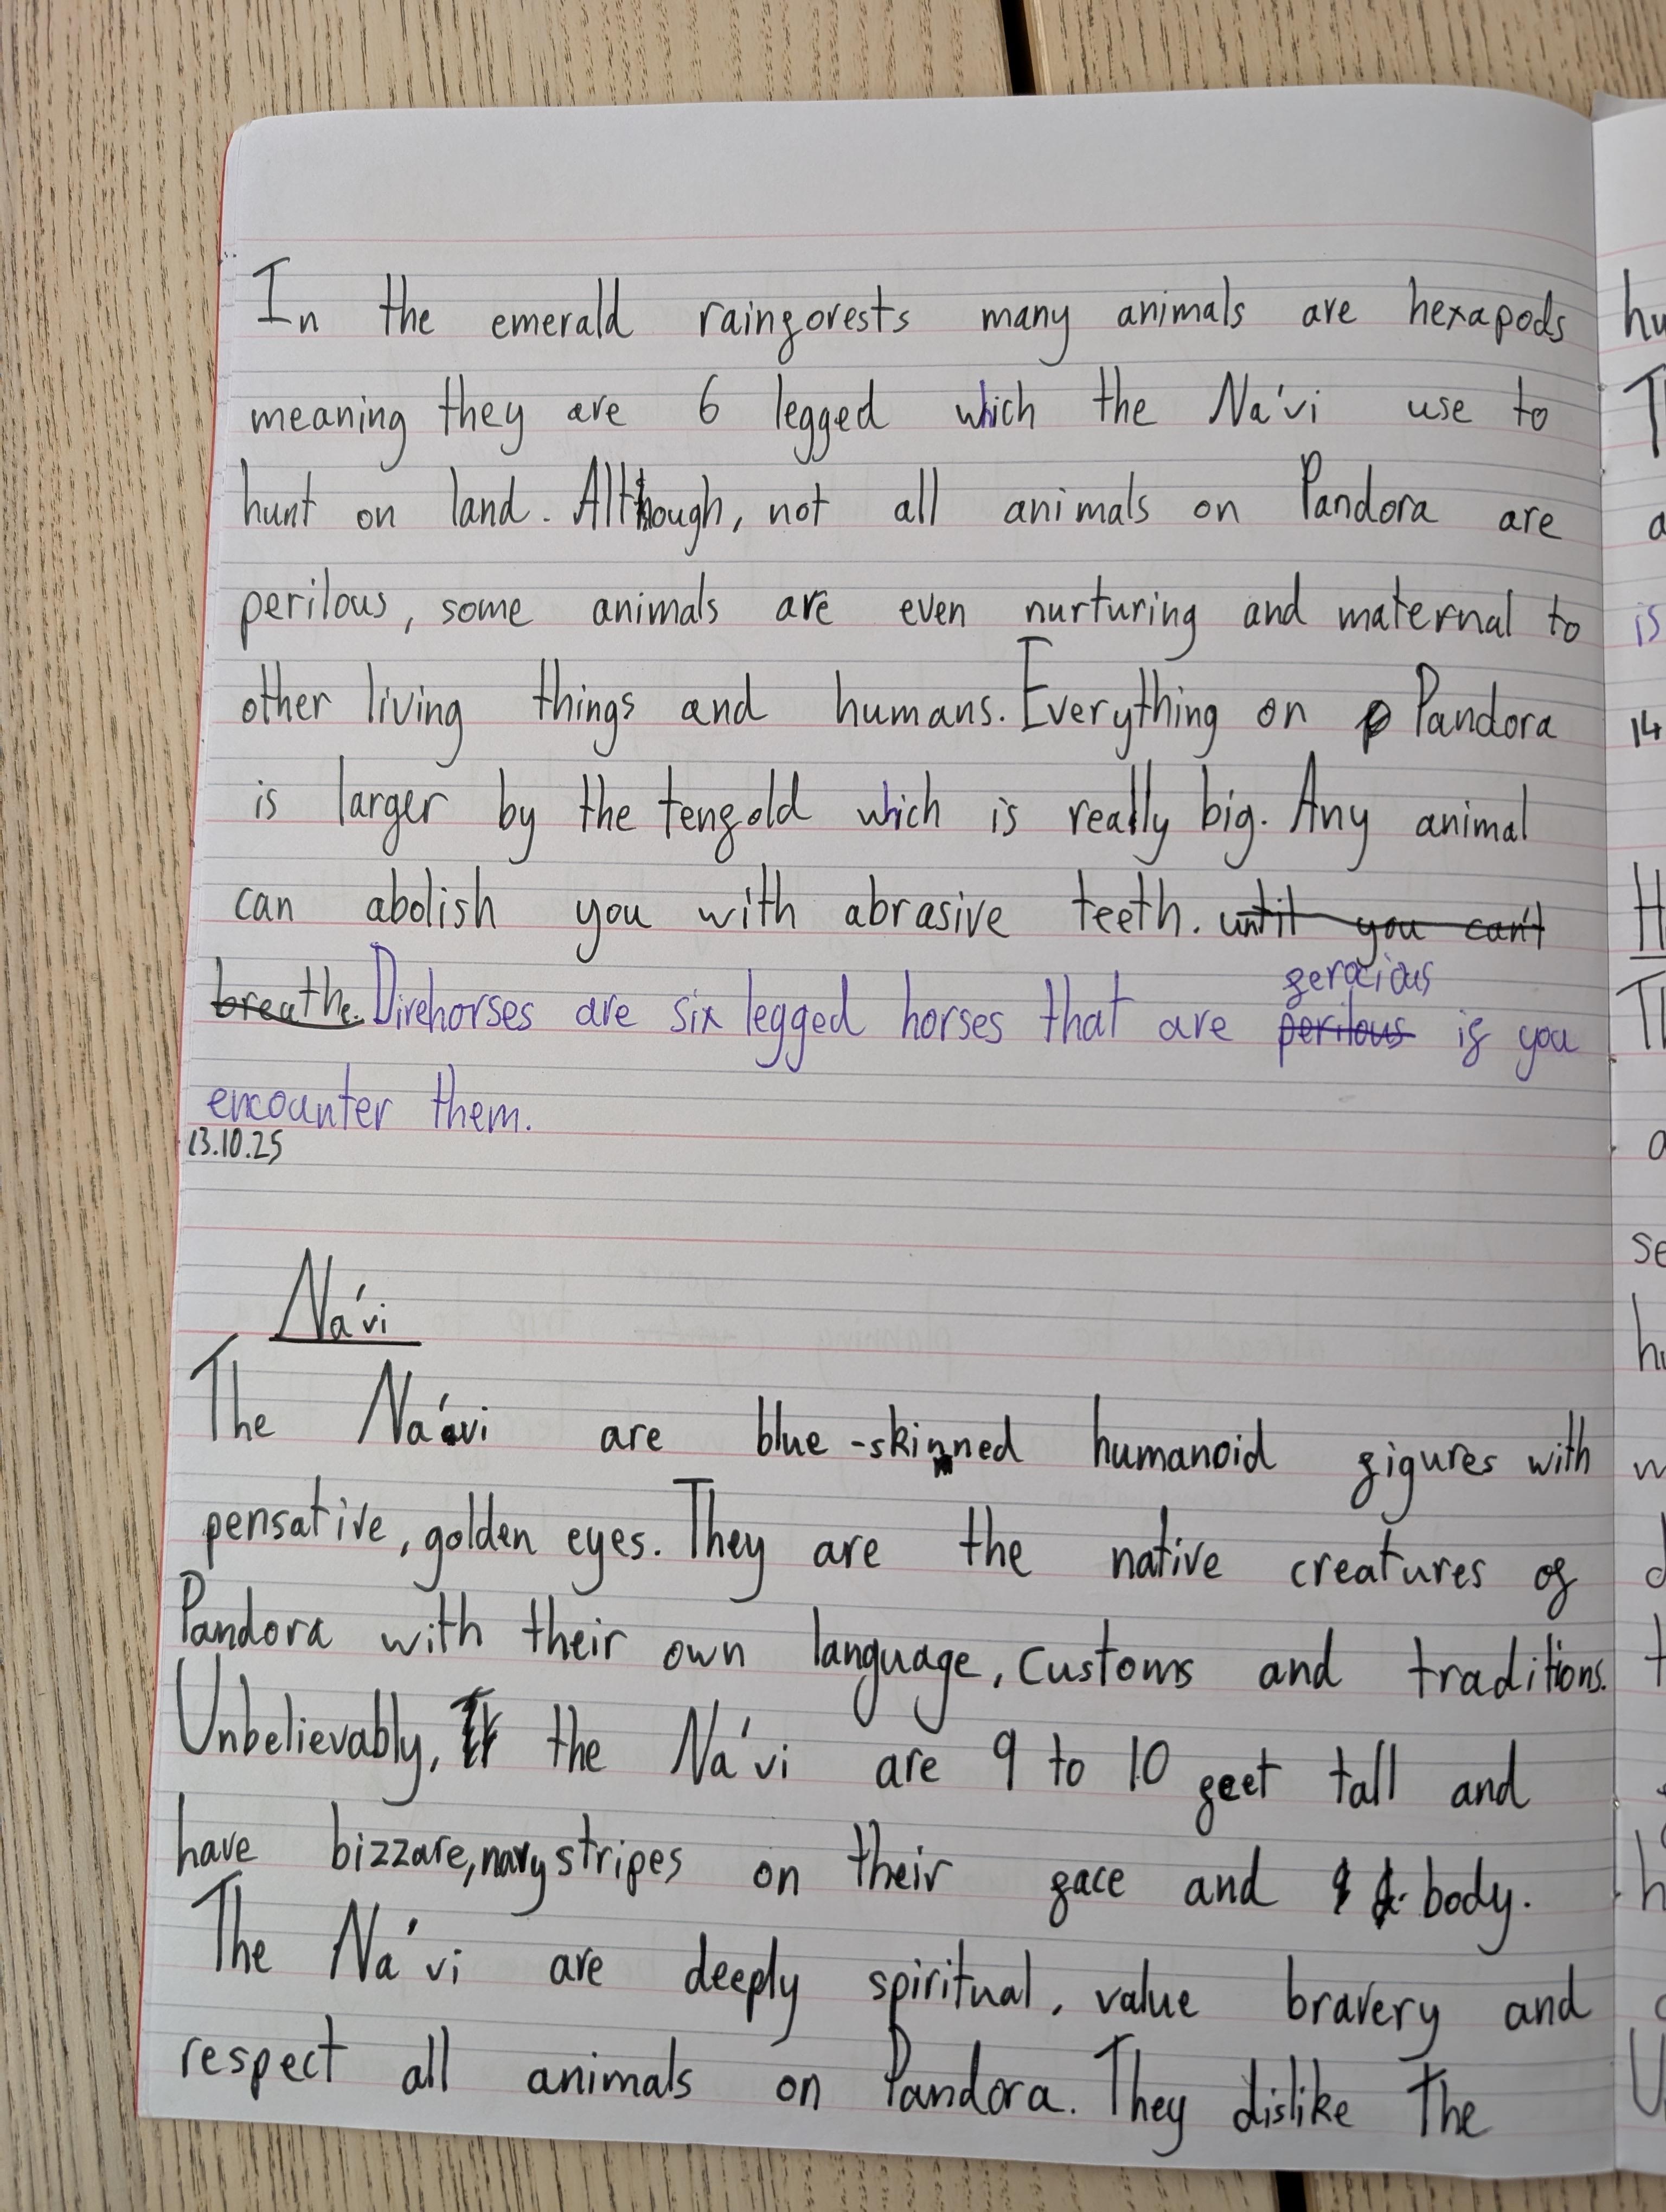 In the emerald rainforests many animals are hexapods
meaning they are 6 legged which the Na'vi use to
hunt on land. Although, not all animals on Pandora are
perilous, some animals are even nurturing and maternal to
other living things and humans. Everything on Pandora
is larger by the tenfold which is really big. Any animal
can abolish you with abrasive teeth. until you can't
ferocious
breathe. Direhorses are six legged horses that are perilous if you
encounter them.
13.10.25
Na'vi
The Na'vi are blue-skinned humanoid figures with
pensative, golden eyes. They are the native creatures of
Pandora with their own language, customs and traditions.
Unbelievably, the Na'vi are 9 to 10 feet tall and
have bizzare, navy stripes on their face and body.
The Na'vi are deeply spiritual, value bravery and
respect all animals on Pandora. They dislike the
14
is